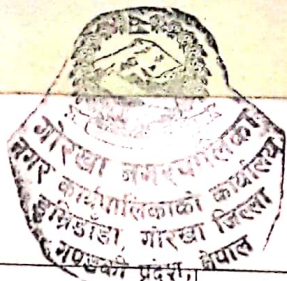 गोरखा नगरपालिका
नगर कार्यपालिकाको कार्यालय
हरमटारी, गोरखा जिल्ला
गण्डकी प्रदेश, नेपाल